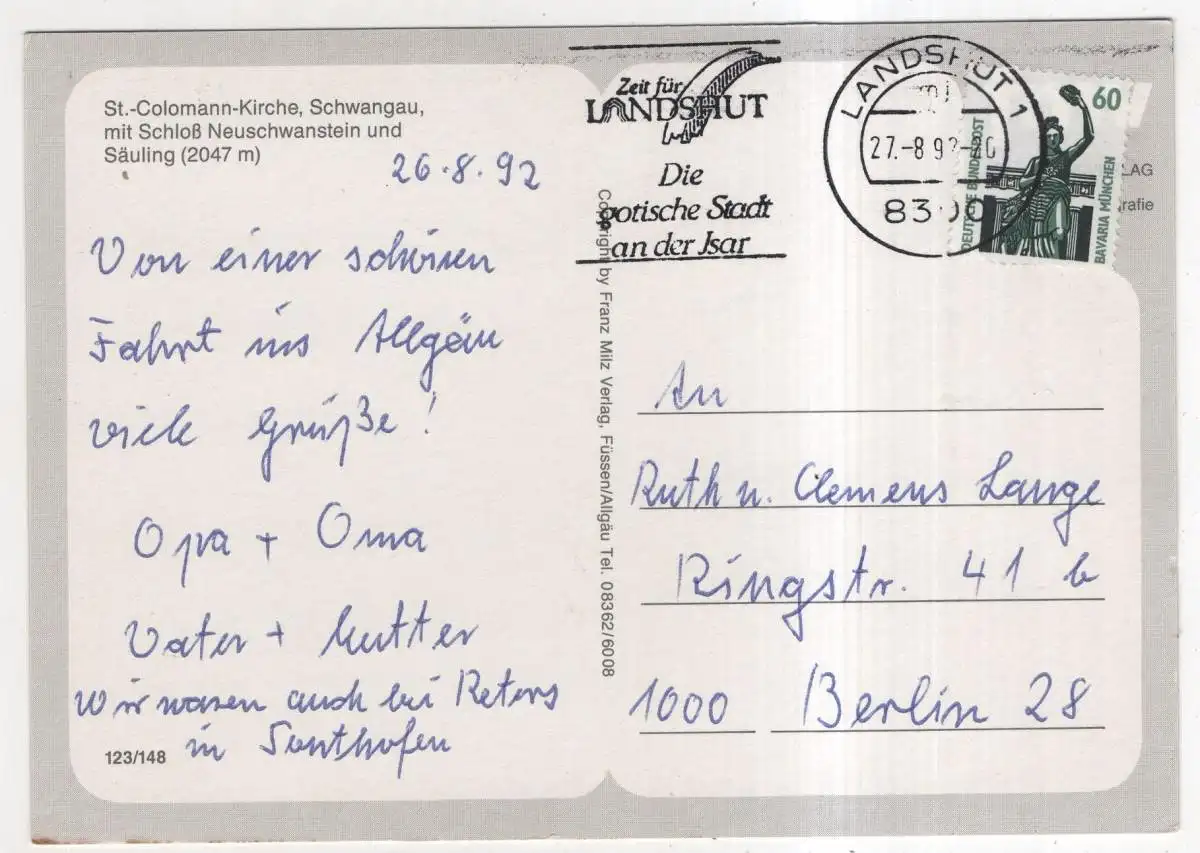 St.-Colomann-Kirche, Schwangau,
mit Schloß Neuschwanstein und
Säuling (2047 m)
26.8.92
Von einer schönen
Fahrt ins Allgäu
viele Grüße!
Opa + Oma
Vater + Mutter
Wir waren auch bei Reters
in Sonthofen
123/148
Copyright by Franz Milz Verlag, Füssen/Allgäu Tel. 08362/6008
Zeit für
LANDSHUT
Die
gotische Stadt
an der Isar
LANDSHUT 1
27.-8.92-20
8300
60
DEUTSCHE BUNDESPOST
BAVARIA MÜNCHEN
LAG
grafie
An
Ruth u. Clemens Lange
Ringstr. 41 b
1000 Berlin 28